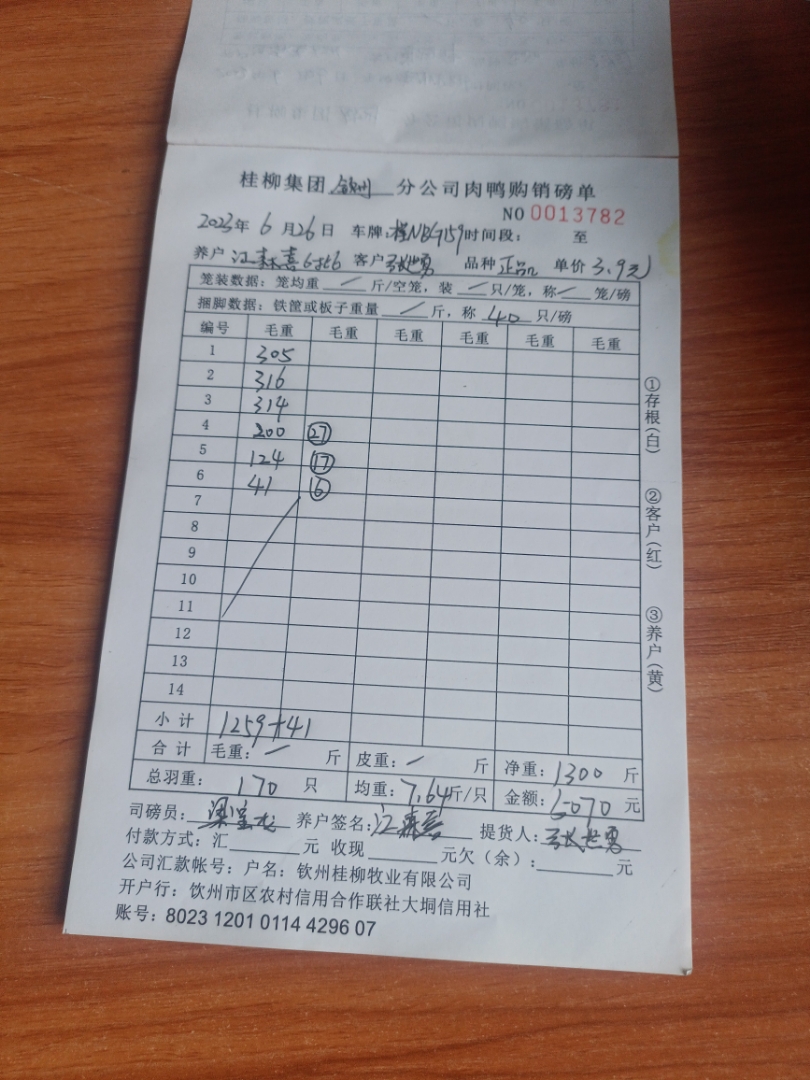 桂柳集团 钦州 分公司肉鸭购销磅单
NO 0013782
2023年 6 月 26 日 车牌: 桂N 时间段: 至
养户 江森喜 客户 张世勇 品种 正品 单价 3.9元
笼装数据: 笼均重 / 斤/空笼, 装 / 只/笼, 称 / 笼/磅
捆脚数据: 铁筐或板子重量 / 斤, 称 40 只/磅
编号 毛重 毛重 毛重 毛重 毛重 毛重
1 305
2 316
3 314
4 200 ㉗
5 124 ⑰
6 41 ⑥
7
8
9
10
11
12
13
14
小计 1259+41
合计 毛重: / 斤 皮重: / 斤 净重: 1300 斤
总羽重: 170 只 均重: 7.64斤/只 金额: 5070 元
司磅员: 养户签名: 江森喜 提货人: 张世勇
付款方式: 汇 元 收现 元欠(余): 元
公司汇款帐号: 户名: 钦州桂柳牧业有限公司
开户行: 饮州市区农村信用合作联社大垌信用社
账号: 8023 1201 0114 4296 07
①存根(白)
②客户(红)
③养户(黄)